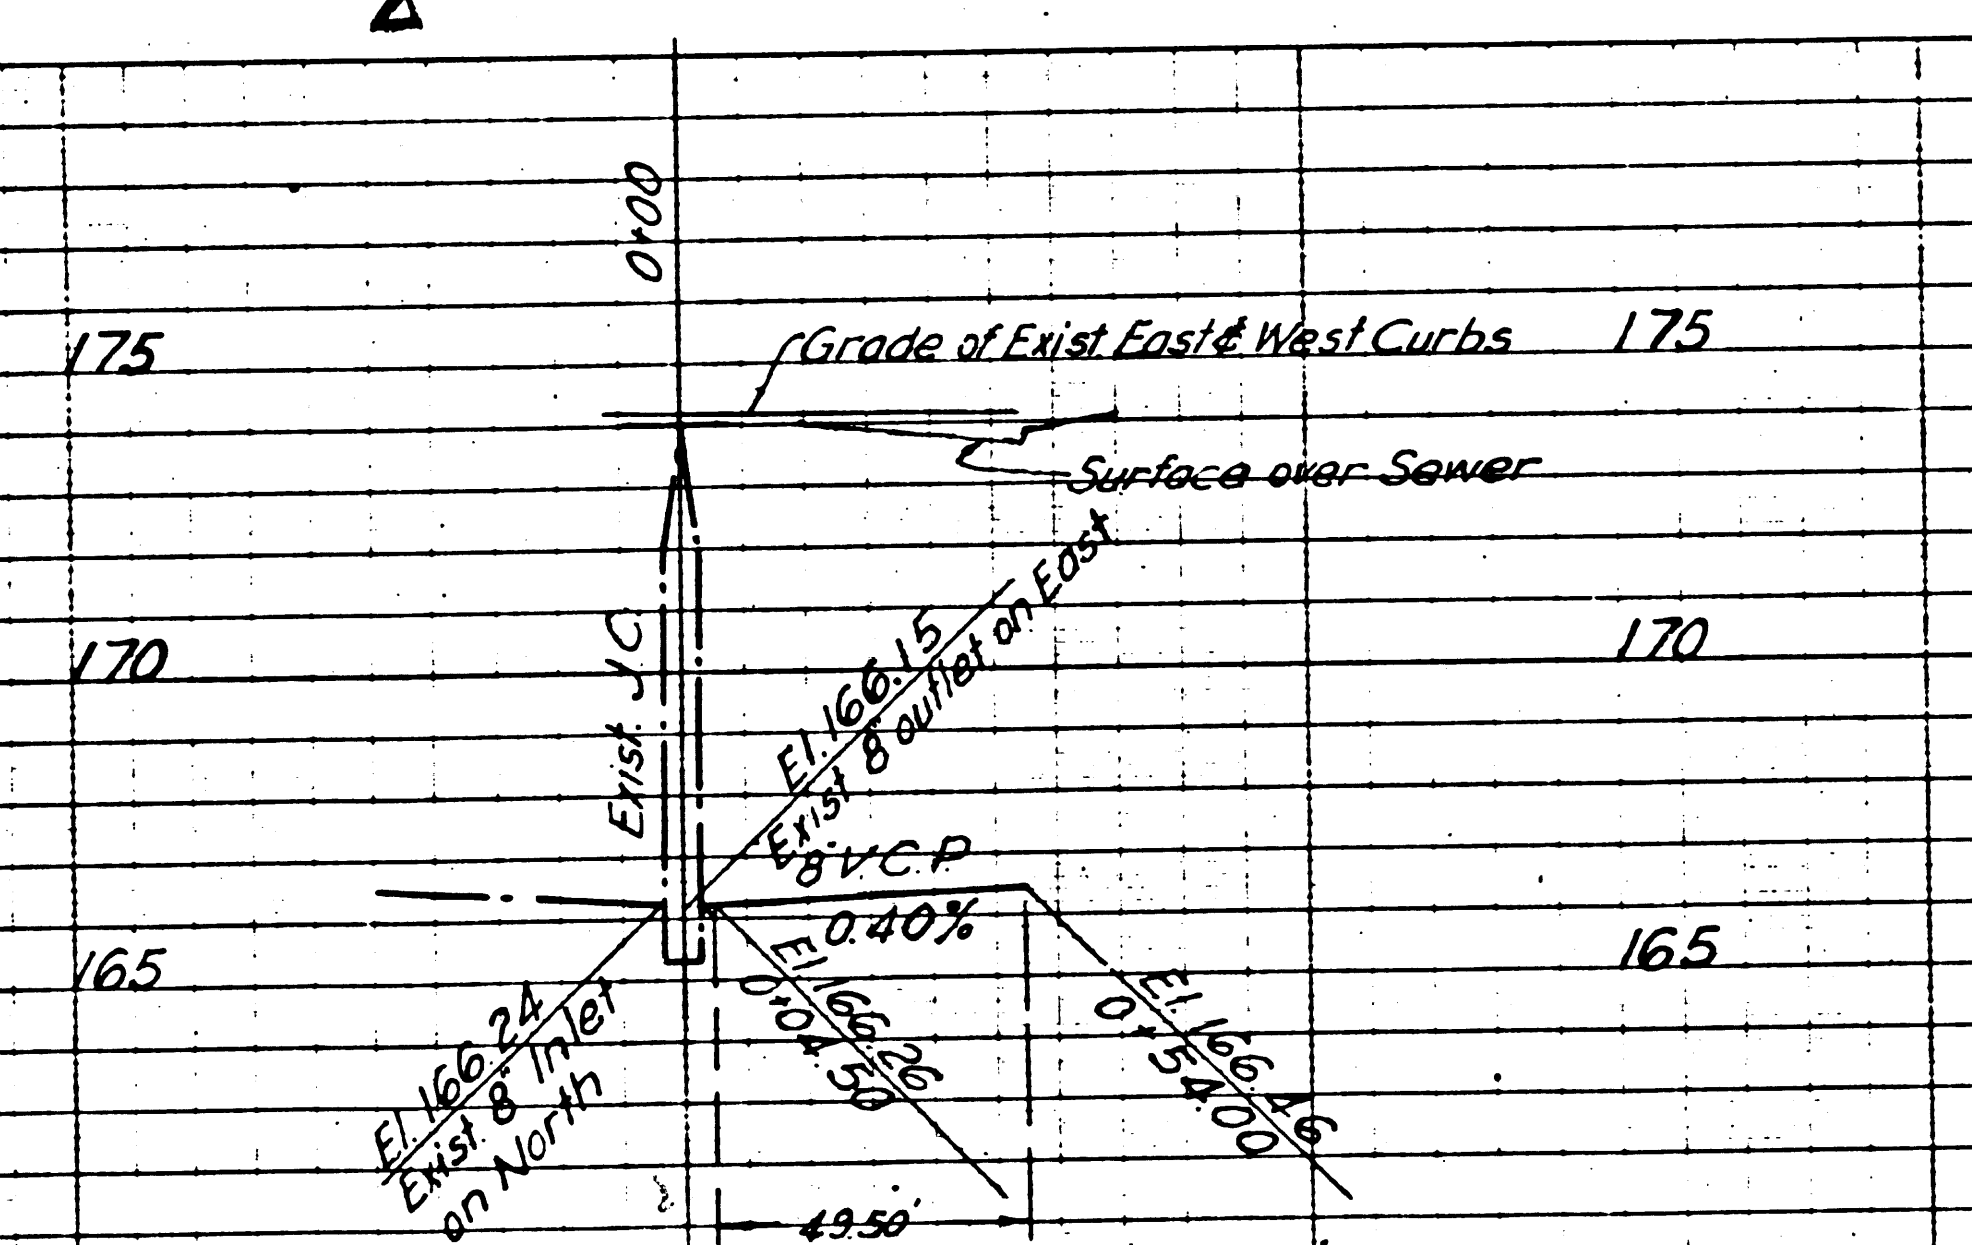 0+00
175
Grade of Exist East & West Curbs
175
Surface over Sewer
Exist. Y.C.
El. 166.15
Exist 8" outlet on East
170
170
8" V.C.P.
0.40%
165
165
El. 166.24
Exist. 8" Inlet
on North
El 166.26
0+04.50
El. 166.46
0+54.00
49.50'